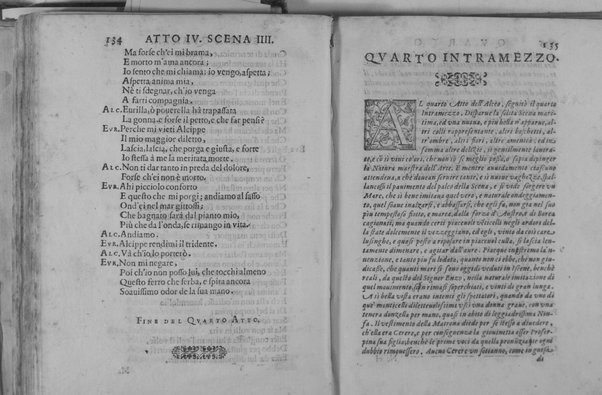 134 ATTO IV. SCENA IIII.
Ma forse ch'ei mi brama,
E morto m'ama ancora;
Io sento che mi chiama: io vengo, aspetta;
Aspetta anima mia,
Nè ti sdegnar, ch'io venga
A farti compagnia.
ALC. Eurilla, ò pouerella hà trapassata
La gonna e forse il petto, e che far pensi?
EVR. Perche mi vieti Alcippe
Il mio maggior diletto,
Lascia, lascia, che porga e giusta, e forte
Io stessa à me la meritata morte.
ALC. Non ti dar tanto in preda del dolore,
Forse ch'ei non è morto.
EVR. Ahi picciolo conforto
E questo che mi porgi; andiamo al sasso
Ond'ei nel mar gittossi;
Che bagnato sarà dal pianto mio,
Più che da l'onda, se rimango in vita.
ALC. Andiamo.
EVR. Alcippe rendimi il tridente.
ALC. Và ch'io lo porterò.
EVR. Non mi negare,
Poi ch'io non posso lui, che tocchi almeno
Questo ferro che serba, e spira ancora
Soauissimo odor de la sua mano.
FINE DEL QVARTO ATTO.
135
QVARTO INTRAMEZZO.
AL quarto Atto dell'Alceo, seguitò il quarto
Intramezzo. Disparue la solita Scena marit-
tima, ed una nuoua, e più bella n'apparue, al-
tri colli rappresentante, altri boschetti, al-
tr'ombre, altri fiori, altre amenità: ed in-
somma altre delizie, sì gentilmente lauora-
te, e sì
Natura maestra dell'Arte. E mentre auidamente ciascuno
attendeua, a che douean seruire tante, e sì nuoue vaghezze, spa-
lancossi il pauimento del palco della Scena, e si vede sorgere un
Mare, che sì bene imitaua quel vero, e naturale ondeggiamento,
quel suo alzarsi, e abbassarsi, che egli fa, non già nel suo
più tempestoso fiotto, e mosso dalla forza d'Austro, o da Borea
cagionati, ma quando certi piaceuoli venticelli negli ardori del-
la state dolcemente il vezzeggiano, ed egli, vinto da così care
lusinghe, a poco a poco
dimenare, e agitar dall'aure. Piacque
uenzione, e tanto più fu lodata, quanto non ci ebbe, chi non giu-
dicasse, che quanti mari si sono oggi veduti in Iscene, benchè
reali, da questo del Signor Enzo, nella naturale imitazione di
quel mouimento, son rimasi superchiati, e vinti di gran lunga.
A sì bella vista erano intenti gli spettatori, quando da uno di
que' monticelli
tenera donzella per mano, quasi in abito di leggiadrissima Nin-
fa. Il vestimento della Matrona diede per se stesso a diuedere,
ch'ella era Cerere, e per conseguenza la giouinetta esser Proser-
pina sua figlia, benchè le prime voci da quella pronunziate ogni
dubbio rimouessero. Aueua Cerere
di
M